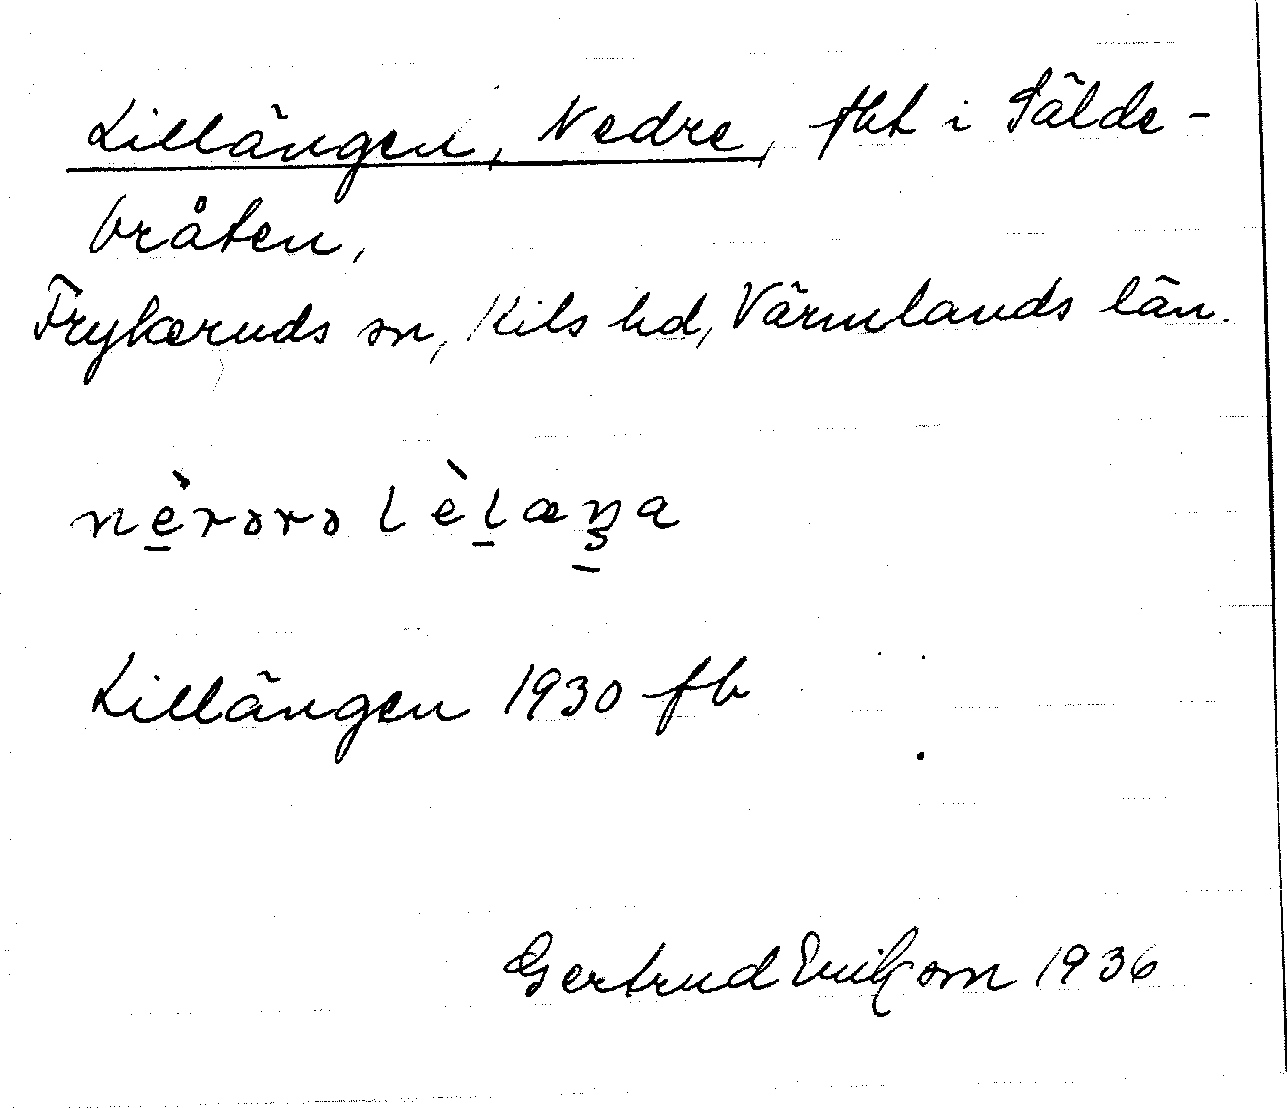 Lillängen, Nedre, fht i Sälde-
bråten,
Frykeruds sn, Kils hd, Värmlands län.
nè̱rərə lèḻæŋa
Lillängen 1930 fb
Gertrud Erikson 1936